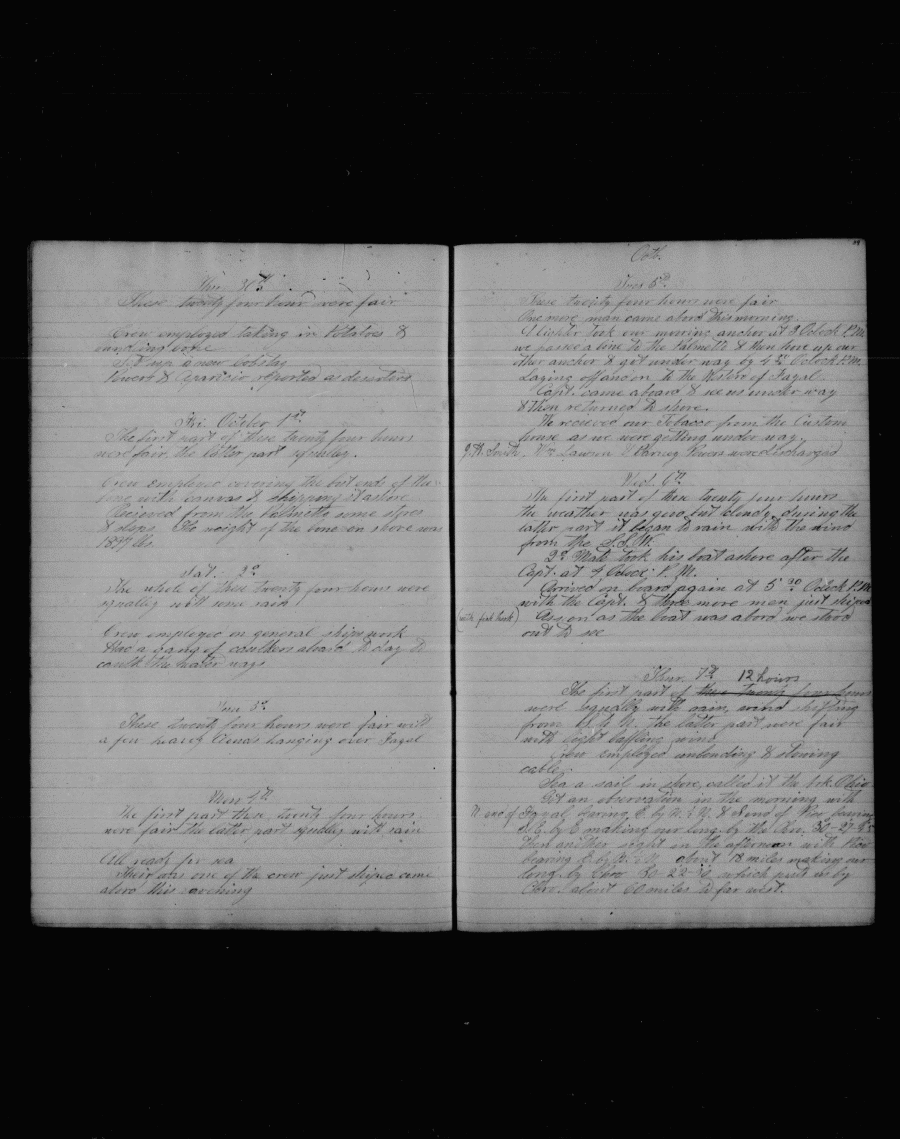 These twenty four hour were fair
Crew employed taking in Potatoes &
bone
Set up a new bobstay
& reported as deserted
Fri. October 1st
The first part of these twenty four hours
were fair the latter part squally.
Crew employed covering the but ends of the
bone with canvas & shipping it ashore
Received from the Palmetto some stores
& slops. The weight of the bone on shore was
lbs
Sat. 2d
The whole of these twenty four hours were
squally with some rain
Crew employed on general ships work
Had a gang of caulkers aboard to day to
caulk the water ways
These twenty four hours were fair with
a few heavy clouds hanging over Fayal
4th
The first part these twenty four hours
were fair the latter part squally with rain
All ready for sea
Their was one of the crew just shiped come
abord this evening
Octb.
Tues 5th
These twenty four hours were fair
One more man came abord this morning.
A Lighter took our mooring anchor at Oclock P.M.
we passed a line to the Palmetto & then hove up our
other anchor & got under way by 4 Oclock P.M.
Laying off and on to the of Fayal
Capt. came aboard & see us under way
& then returned to shore.
We recieved our Tobacco from the Custom
house as we were getting under way.
Wm Lawson & Harvey were discharged
Wed. 6th
The first part of these twenty four hours
the weather was good but cloudy, during the
latter part it began to rain with the wind
from the S.S.W.
2d Mate took his boat ashore after the
Capt. at 4 Oclock P.M.
Arrived on board again at 5 30 Oclock P.M.
with the Capt. & three more men just shiped
As soon as the boat was abord we stood
out to sea
Thur. 7th 12 hours
The first part of these twenty four hours
were squally with rain, wind shifting
from the latter part were fair
with light baffling wind
Crew employed unbending & stowing
cable.
See a sail in shore, called it the brk. Ohio
Got an observation in the morning with
N. end of Fayal bearing E. by N. & end of Pico bearing
by E making our long. by the Chro.
then another sight in the afternoon with Pico
bearing E. by N. about 18 miles making our
long. by Chro 30-22-30 which puts us by
Chro. about 60 miles to far west.